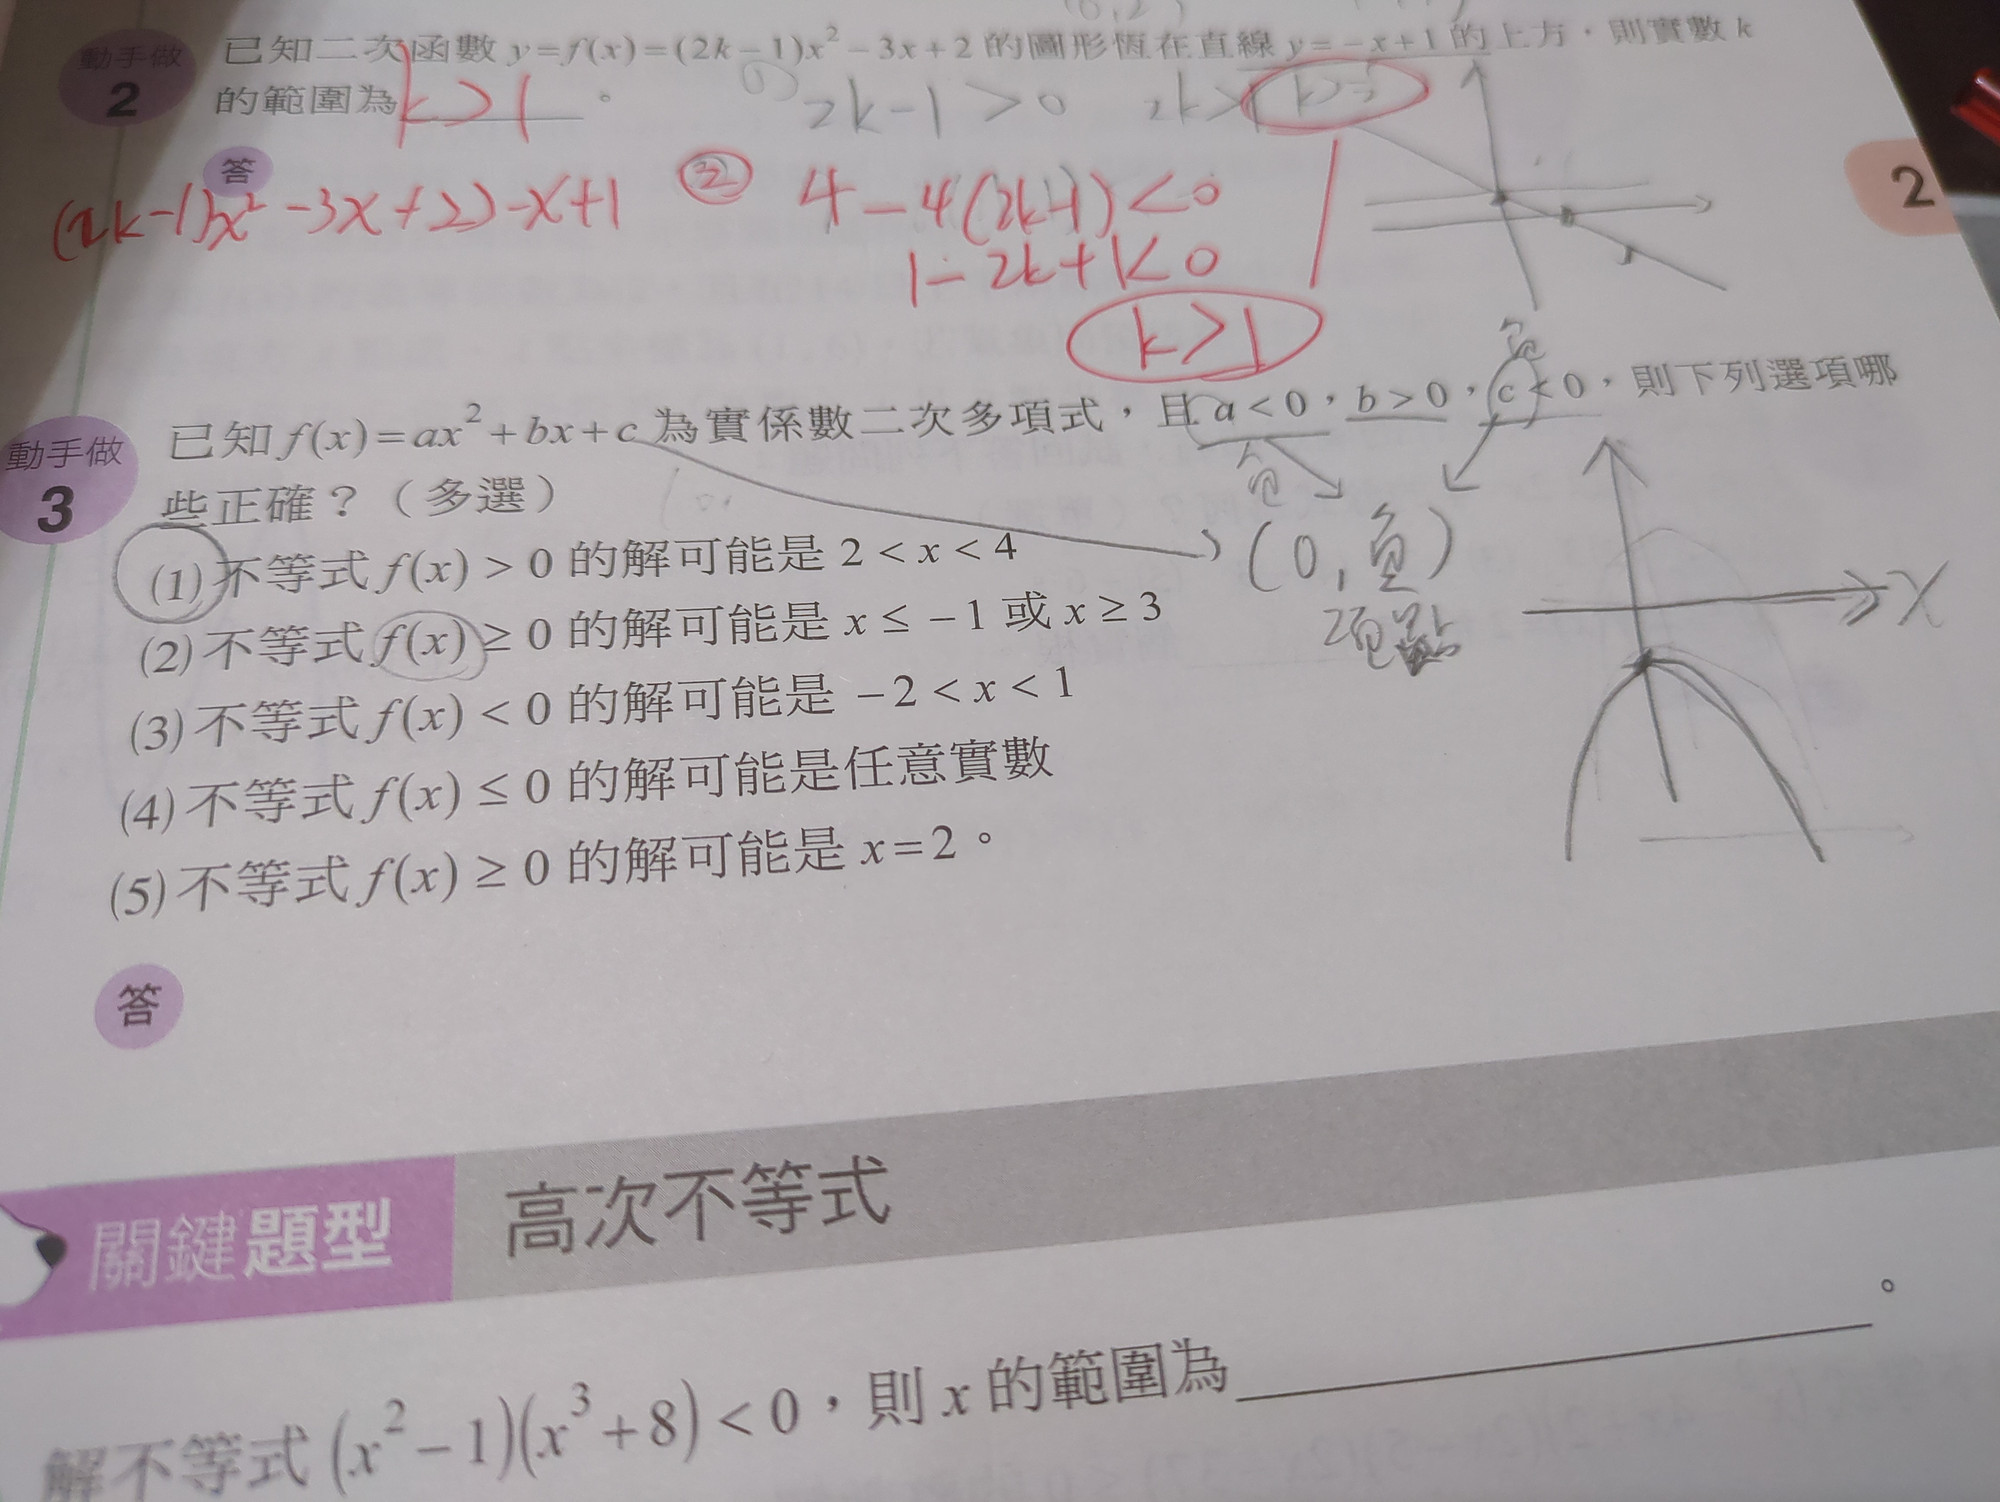 動手做 2 已知二次函數 y=f(x)=(2k-1)x²-3x+2 的圖形恆在直線 y=-x+1 的上方，則實數 k
的範圍為 k>1 。 2k-1>0
答
(2k-1)x²-3x+2)-x+1 ② 4-4(2k-1)<0
1-2k+1<0
k>1
負
動手做 3 已知 f(x)=ax²+bx+c 為實係數二次多項式，且 a<0，b>0，c<0，則下列選項哪
些正確？（多選） 負
(1)不等式 f(x)>0 的解可能是 2<x<4 (0,負)
(2)不等式 f(x)≥0 的解可能是 x≤-1 或 x≥3 頂點 X
(3)不等式 f(x)<0 的解可能是 -2<x<1
(4)不等式 f(x)≤0 的解可能是任意實數
(5)不等式 f(x)≥0 的解可能是 x=2。
答
2
關鍵題型 高次不等式
解不等式 (x²-1)(x³+8)<0，則 x 的範圍為 。